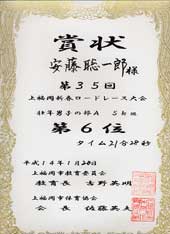 賞状
安藤聡一郎様
第35回
上福岡新春ロードレース大会
壮年男子の部A 5km
第6位
タイム21分28秒
平成14年1月20日
上福岡市教育委員会
教育長 吉野英明
上福岡市体育協会
会長 佐藤英夫